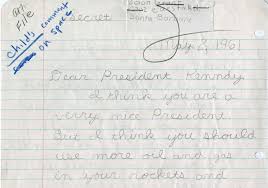 art
FILE
Child's comment
on space
secret
Santa Barbara
May 2, 1961
Dear President Kenndy
I think you are a
verry nice President.
But I think you should
use more oil and gas
in your rockets and